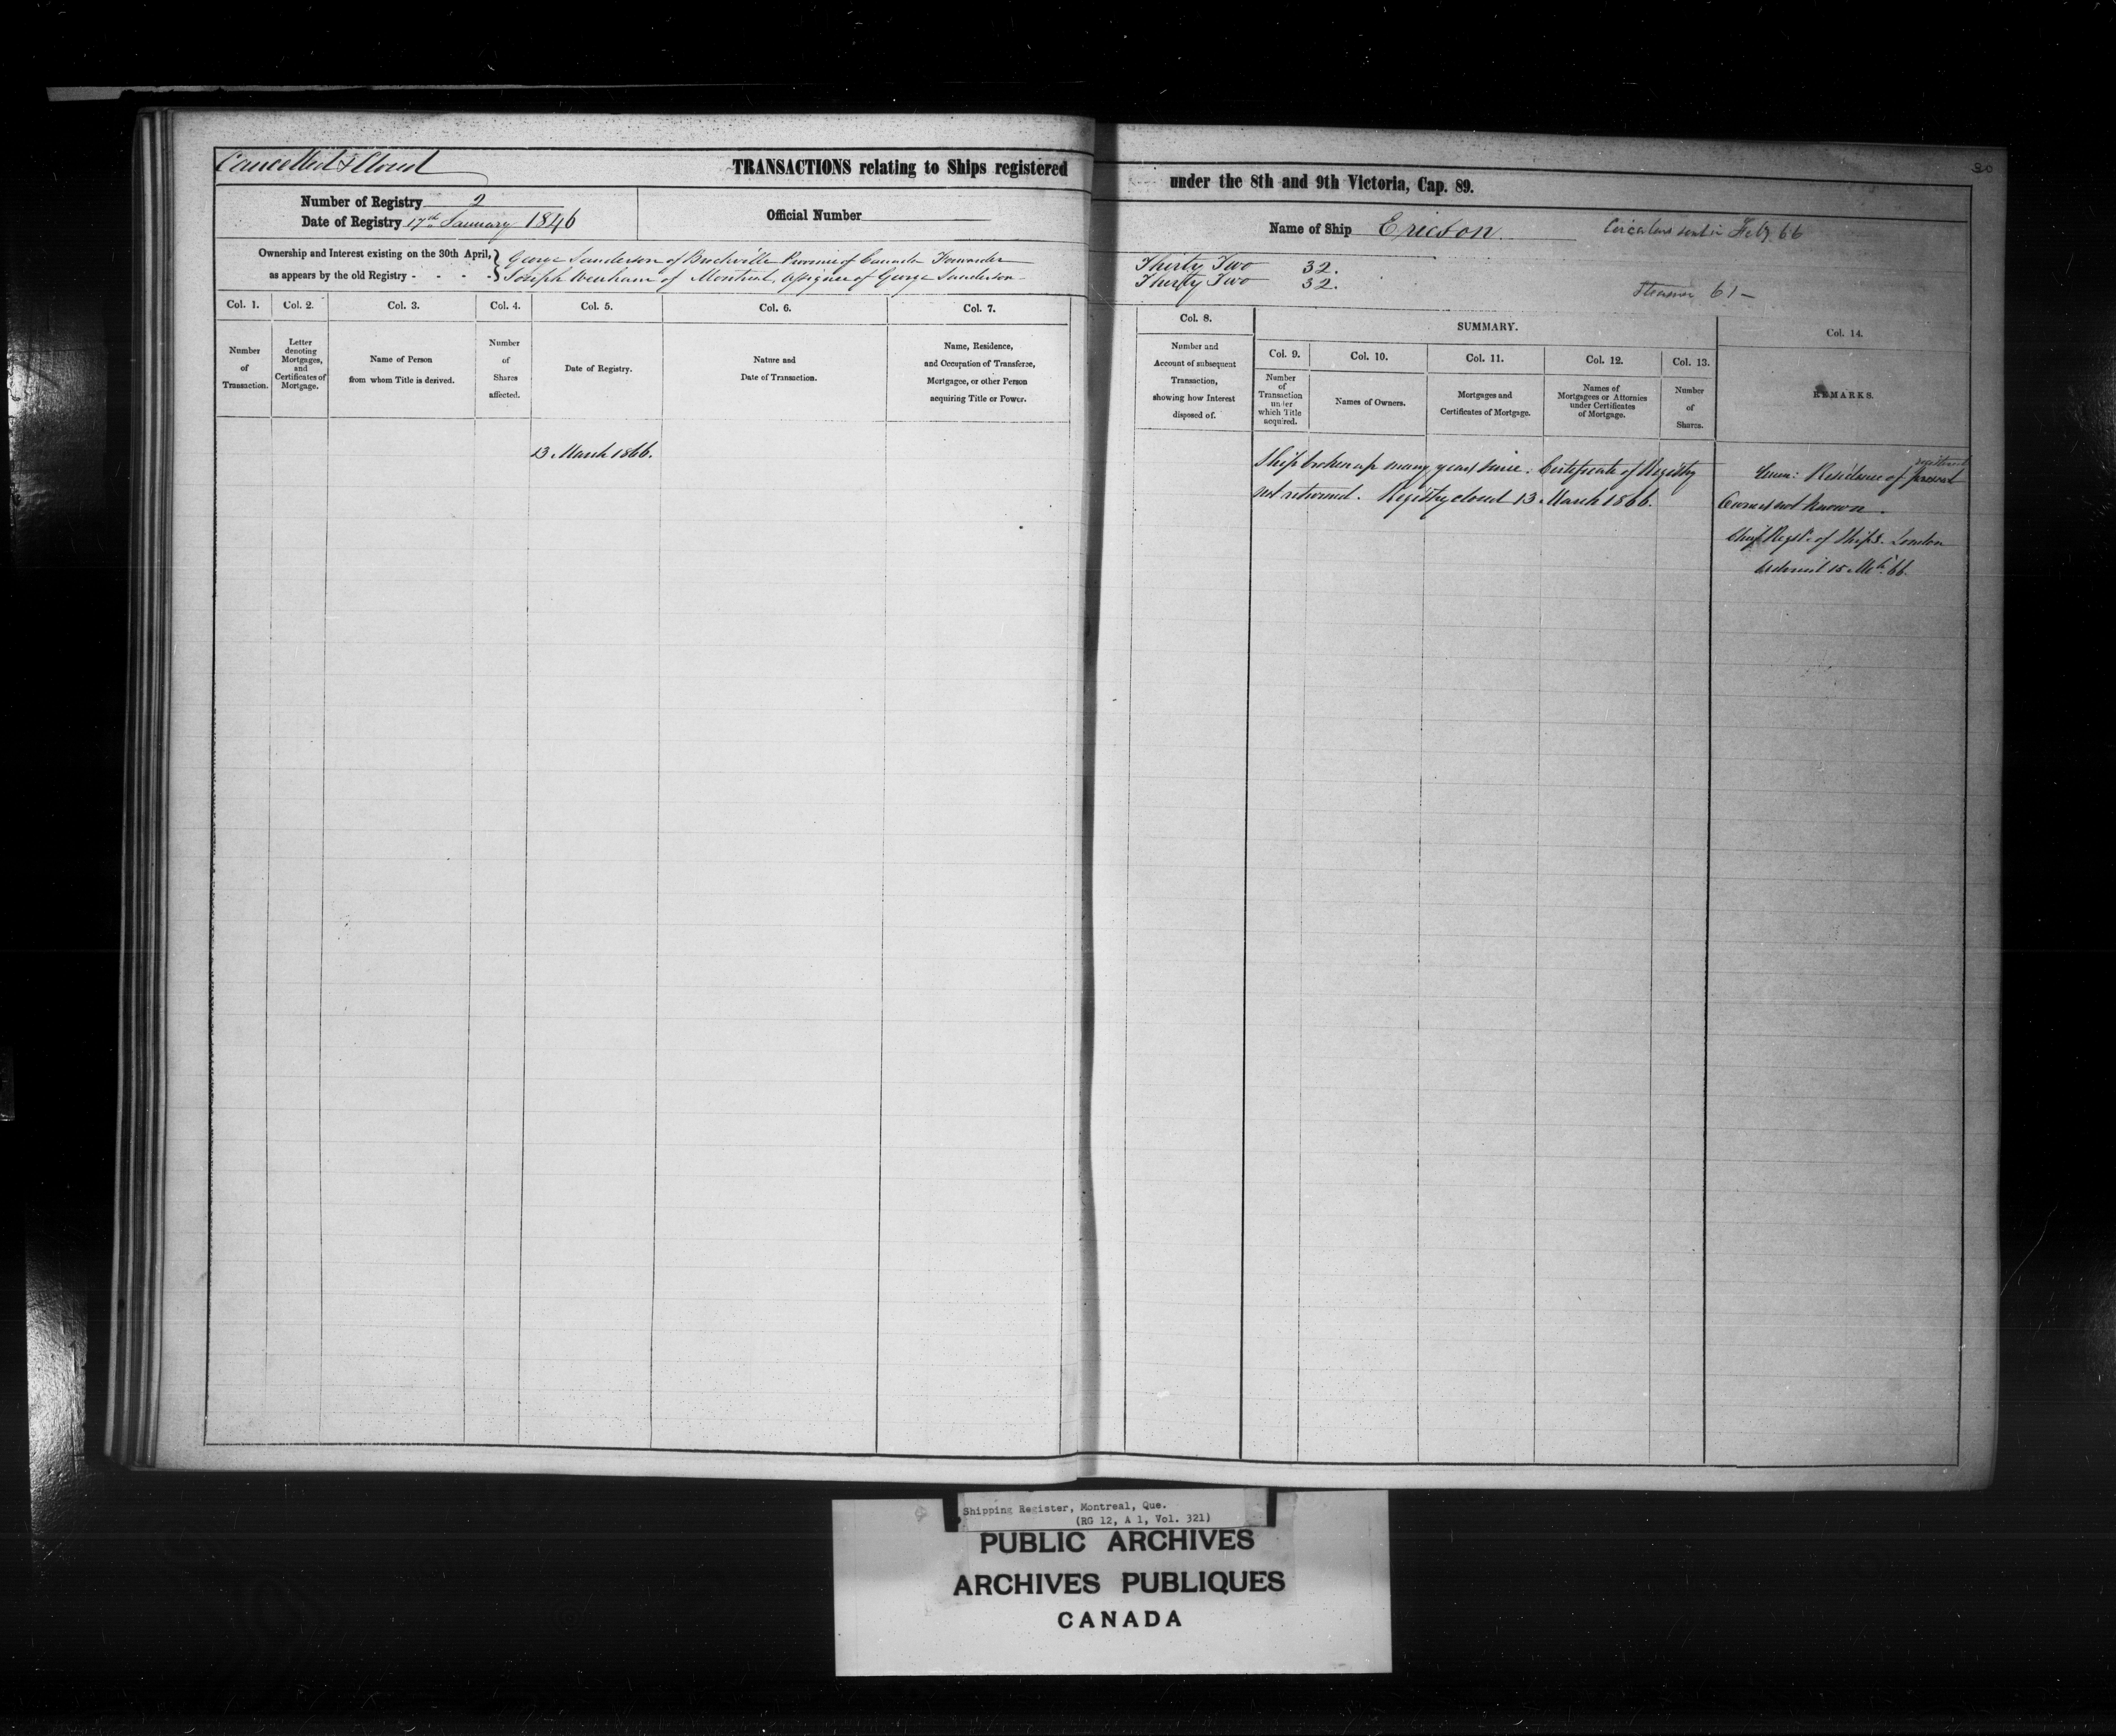 30
Cancelled & Closed
TRANSACTIONS relating to Ships registered under the 8th and 9th Victoria, Cap. 89.
Number of Registry 2
Date of Registry 17th January 1846
Official Number
Name of Ship Ericson
Circulars sent in Feby. 66
Ownership and Interest existing on the 30th April,
as appears by the old Registry - - - -
George Sanderson of Brockville Province of Canada Forwarder Thirty Two 32.
Joseph Wenham of Montreal, Assignee of George Sanderson Thirty Two 32.
Steamer 61 -
Col. 1.
Number
of
Transaction.
Col. 2.
Letter
denoting
Mortgages,
and
Certificates of
Mortgage.
Col. 3.
Name of Person
from whom Title is derived.
Col. 4.
Number
of
Shares
affected.
Col. 5.
Date of Registry.
Col. 6.
Nature and
Date of Transaction.
Col. 7.
Name, Residence,
and Occupation of Transferee,
Mortgagee, or other Person
acquiring Title or Power.
Col. 8.
Number and
Account of subsequent
Transaction,
showing how Interest
disposed of.
SUMMARY.
Col. 9.
Number
of
Transaction
under
which Title
acquired.
Col. 10.
Names of Owners.
Col. 11.
Mortgages and
Certificates of Mortgage.
Col. 12.
Names of
Mortgagees or Attornies
under Certificates
of Mortgage.
Col. 13.
Number
of
Shares.
Col. 14.
REMARKS.
13 March 1866.
Ship broken up many years since. Certificate of Registry
not returned. Registry closed 13 March 1866.
Residence of present
registered
Owners not known.
Chief Regstr. of Ships. London
advised 15 Mch. 66.
Shipping Register, Montreal, Que.
(RG 12, A 1, Vol. 321)
PUBLIC ARCHIVES
ARCHIVES PUBLIQUES
CANADA